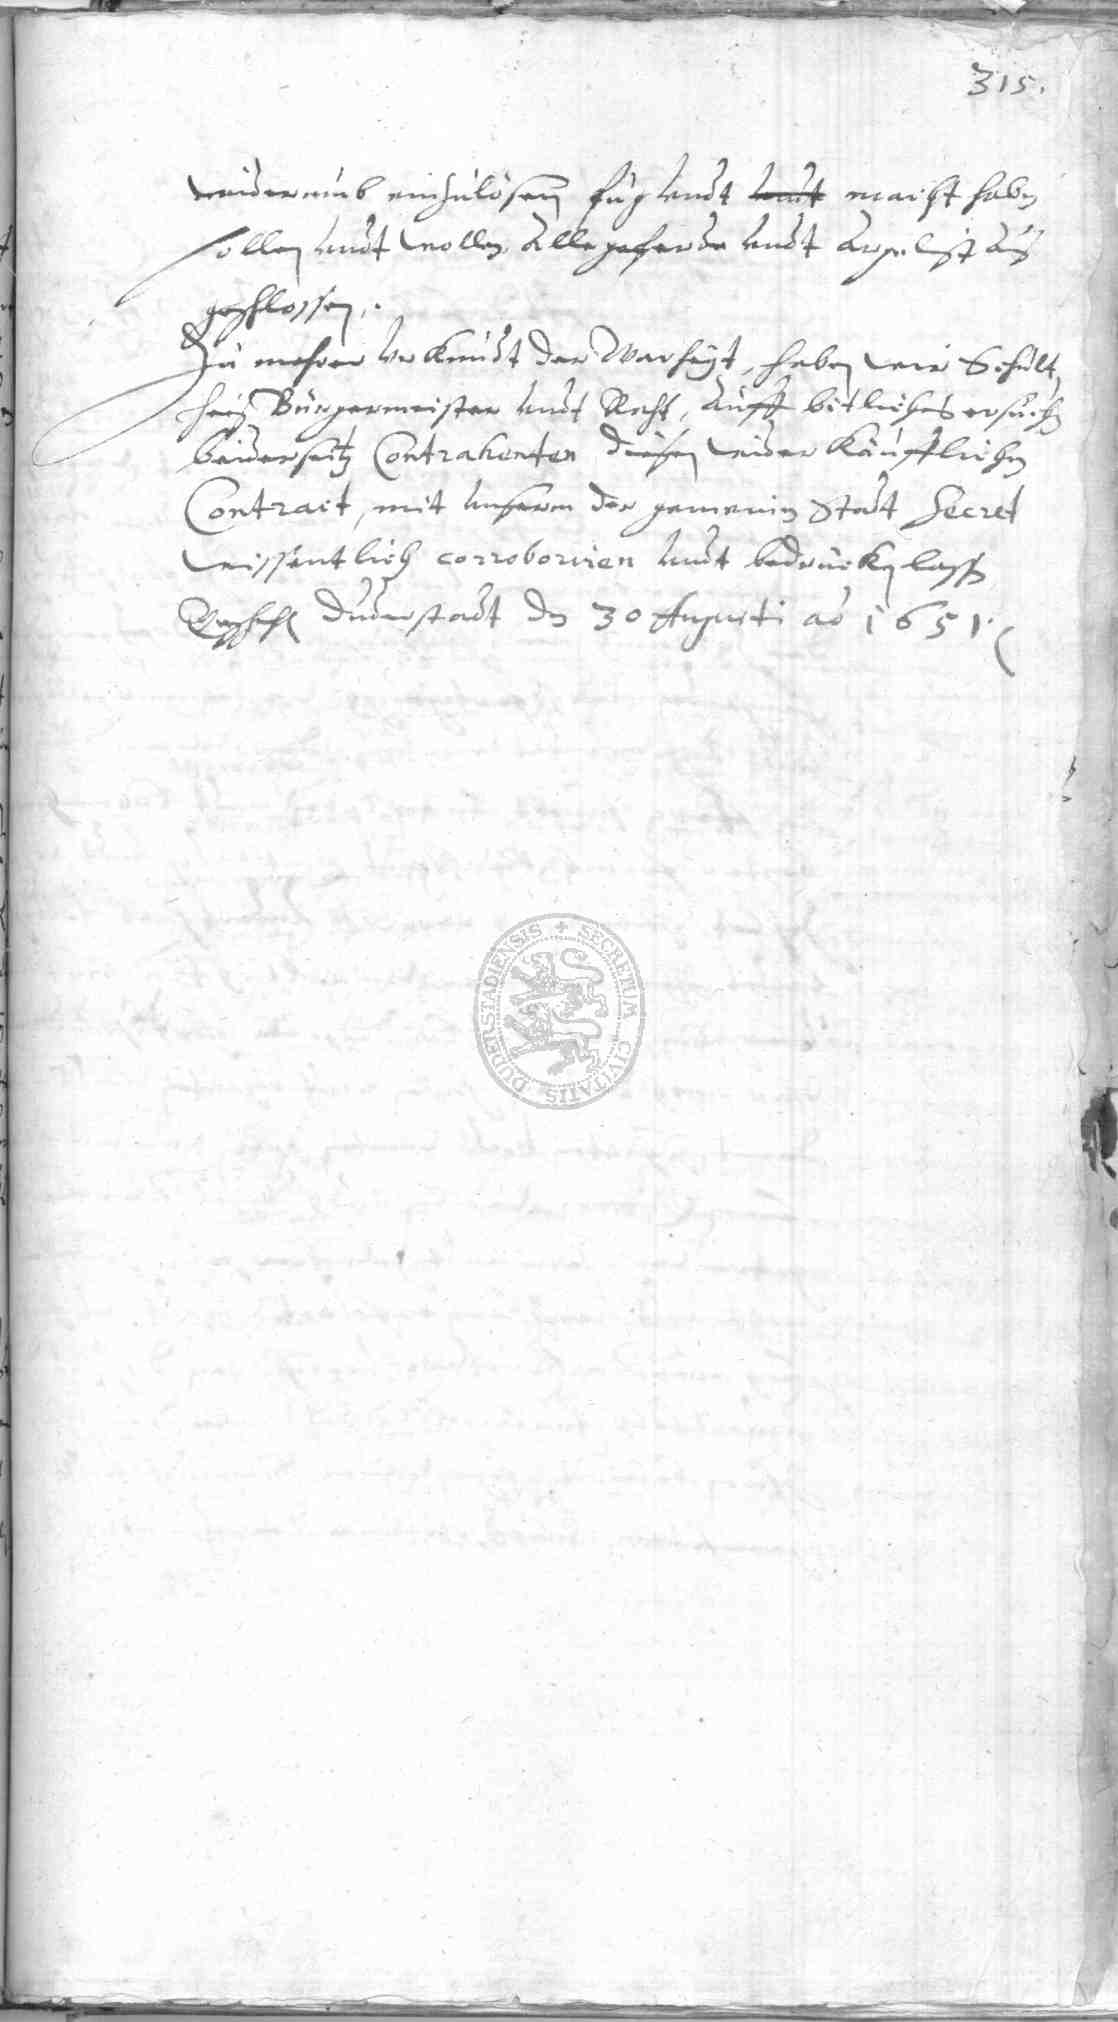 315.
widerumb einzulösen fug undt undt macht haben
sollen undt wollen, Alle geferde undt Argelist auß
geschlossen.
Zu mehrer Urkundt der Warheyt, haben wir Schult
heiß Bürgermeister undt Raht, Auff bitliches ersuchen
beiderseitz Contrahenten diesen widerkäufflichen
Contract, mit unserm der gemeinen Stadt Secret
wissentlich corroboriren undt bedrucken lassen
Geschehen Duderstadt den 30 Augusti ao 1651.
SECRETUM CIVITATIS DUDERSTADIENSIS